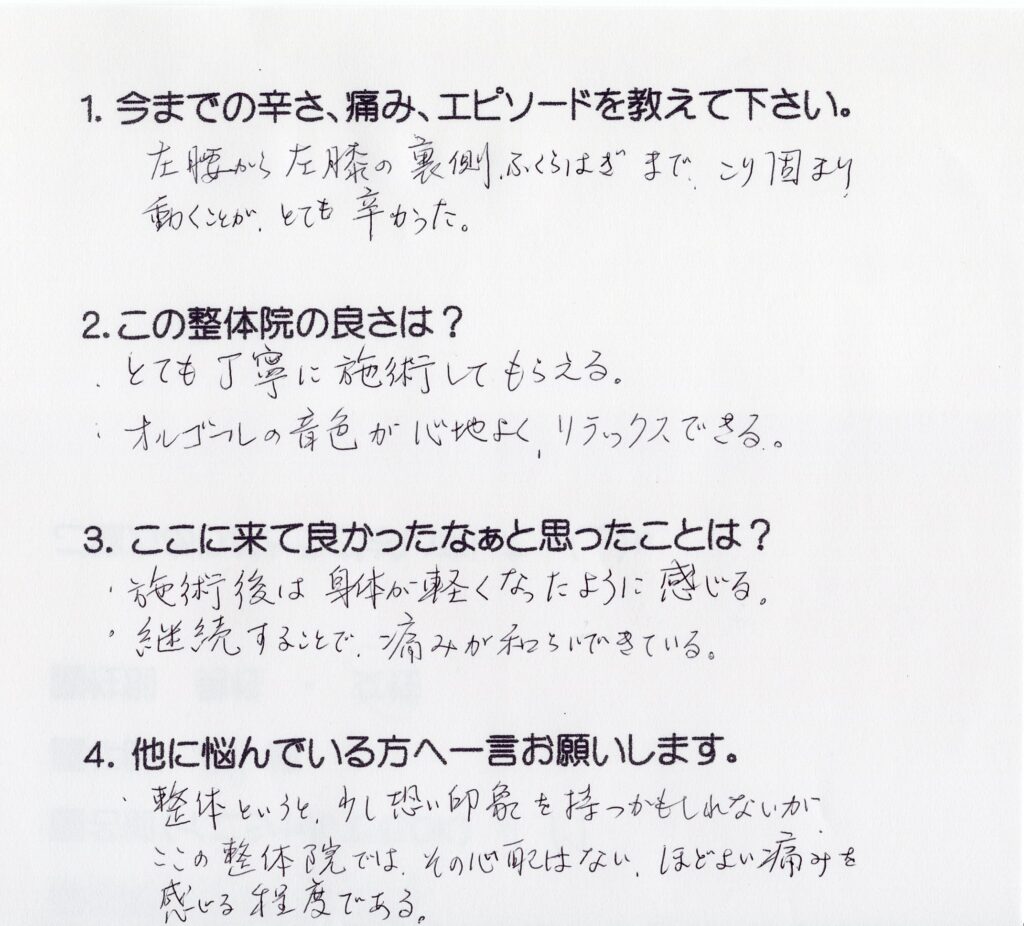 1. 今までの辛さ、痛み、エピソードを教えて下さい。
左腰から左膝の裏側、ふくらはぎまで、こり固まり、
動くことが、とても辛かった。
2. この整体院の良さは？
・とても丁寧に施術してもらえる。
・オルゴールの音色が心地よく、リラックスできる。
3. ここに来て良かったなぁと思ったことは？
・施術後は身体が軽くなったように感じる。
・継続することで、痛みが和らいできている。
4. 他に悩んでいる方へ一言お願いします。
・整体というと、少し恐い印象を持つかもしれないが、
ここの整体院では、その心配はない、ほどよい痛みを
感じる程度である。